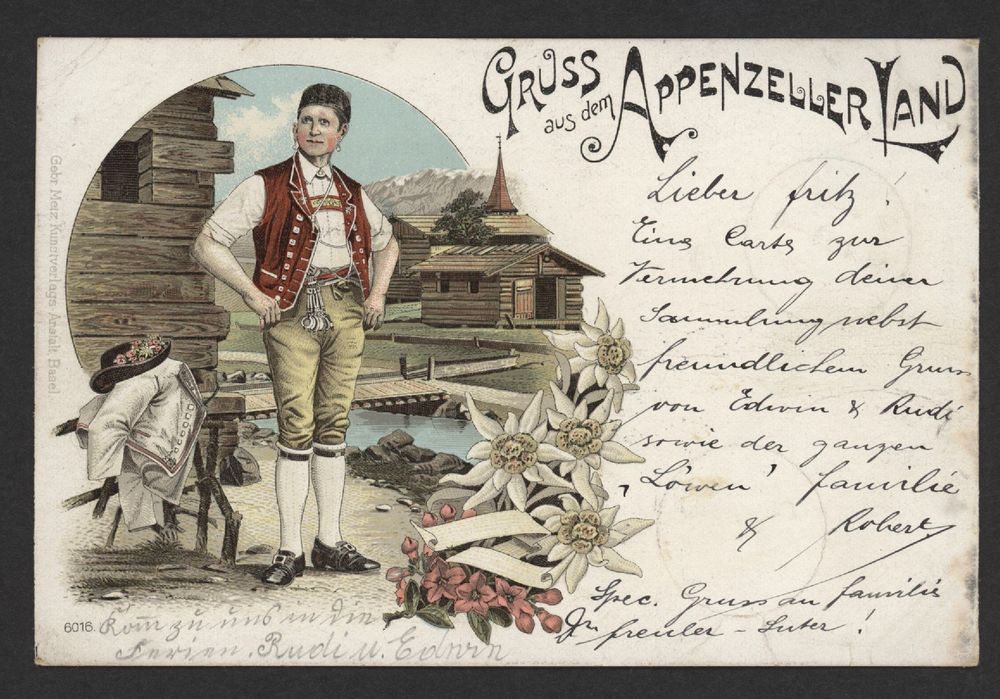 Gruss aus dem Appenzeller Land
Lieber fritz!
Eine Carte zur
Vermehrung deiner
Sammlung nebst
freundlichem Gruss
von Edwin & Rudi
sowie der ganzen
"Löwen" familie
& Robert
Spec. Gruss an familie
freuler-Suter!
Gebr. Metz Kunstverlags-Anstalt Basel
6016.
Kom zu uns in die
Ferien. Rudi u. Edwin